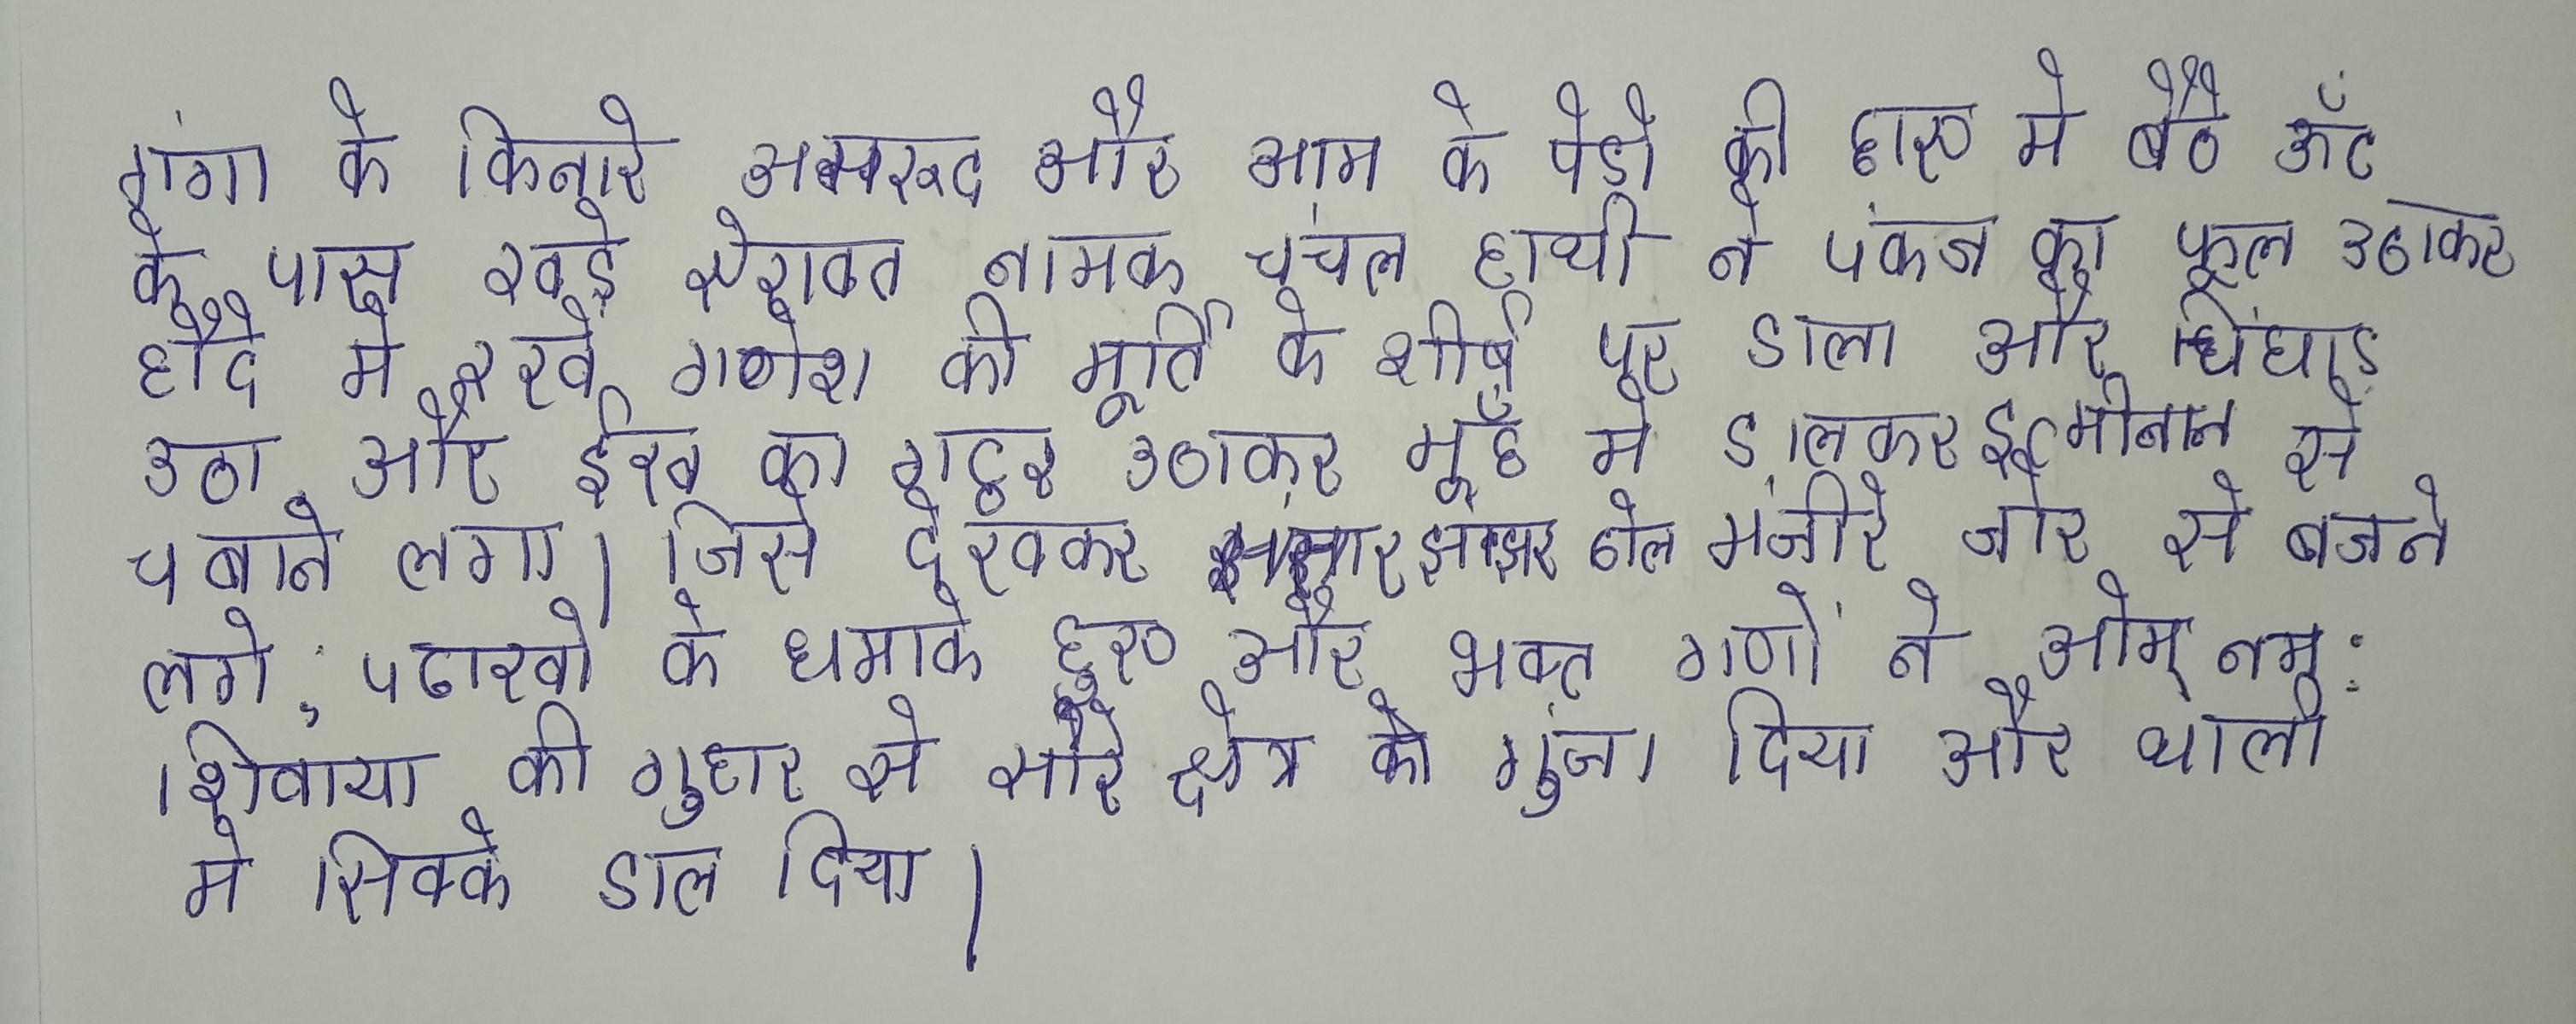 गंगा के किनारे अमरूद और आम के पेडो की छाँव मे बैठे ऊँट
के पास खड़े ऐरावत नामक चंचल हाथी ने पंकज का फूल उठाकर
हौदे मे रखे गणेश की मूर्ति के शीर्ष पर डाला और चिंघाड़
उठा और ईख का गट्ठर उठाकर मूँह मे डालकर इत्मीनान से
चबाने लगा। जिसे देखकर झांझर ढोल मंजीरे जोर से बजने
लगे, पटाखो के धमाके हुए और भक्त गणों ने ओम् नम:
शिवाया की गुहार से सारे क्षेत्र को गुंजा दिया और थाली
मे सिक्के डाल दिया।